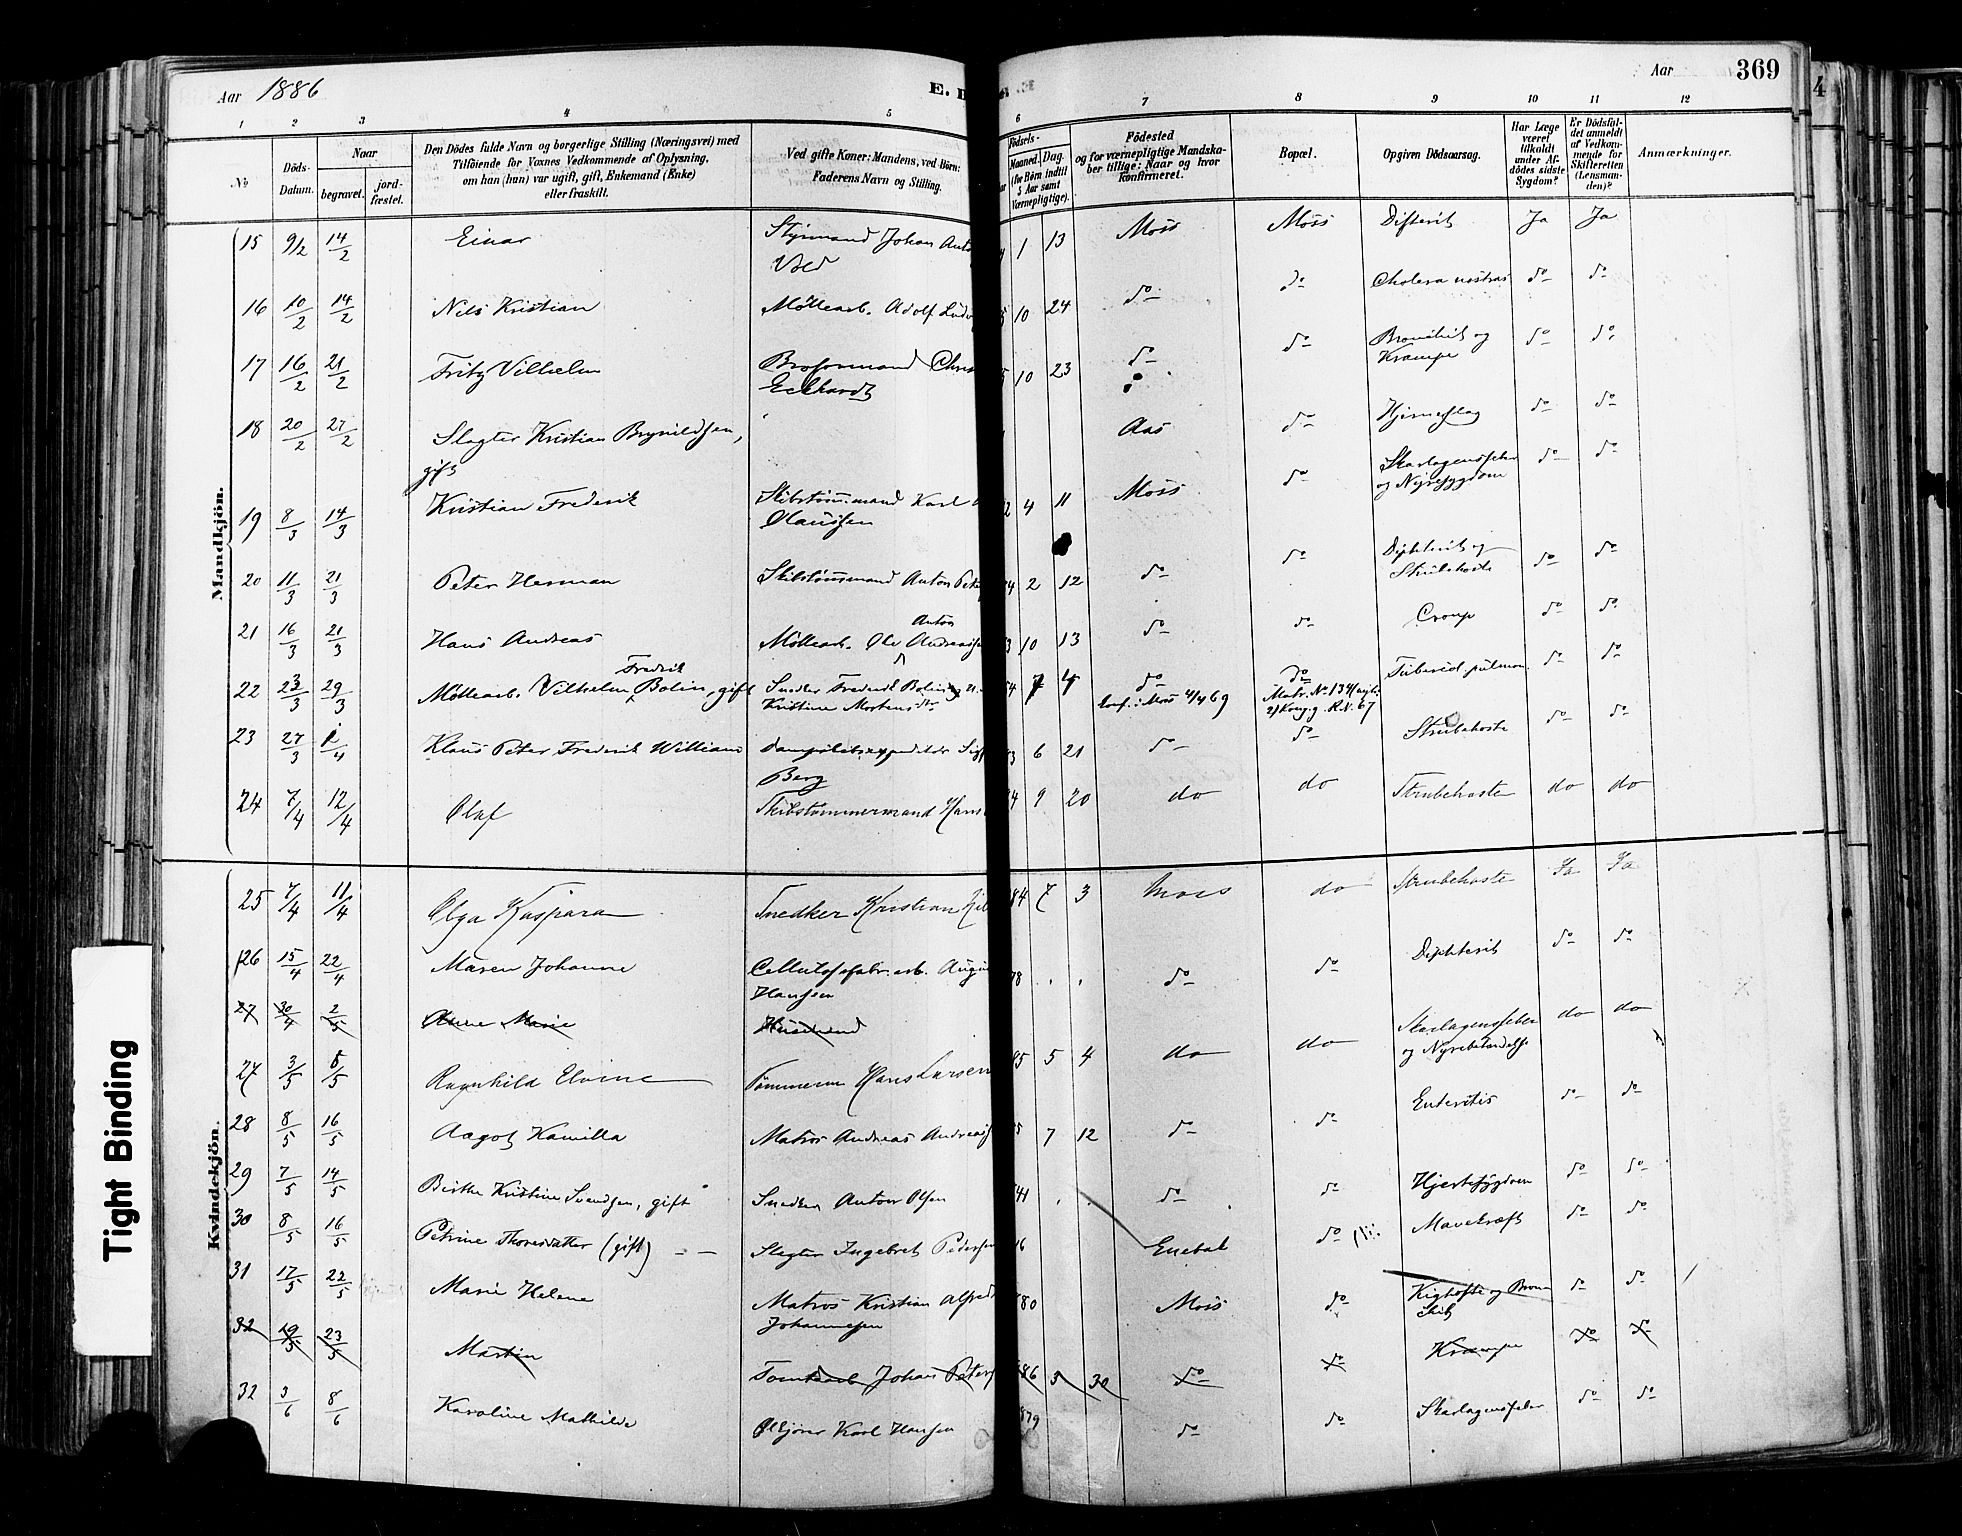 Aar 1886
Aar
369
4
1 2 3 4 5 6 7 8 9 10 11 12
No
Döds-Datum.
Naar
begravet.
jord-fæstet.
Den Dödes fulde Navn og borgerlige Stilling (Næringsvei) med
Tilföiende for Voxnes Vedkommende af Oplysning,
om han (hun) var ugift, gift, Enkemand (Enke)
eller fraskilt.
Ved gifte Koner: Mandens, ved Börn:
Faderens Navn og Stilling.
Födsels-
Maaned. Dag.
(for Börn indtil
5 Aar samt
Værnepligtige).
Födested
og for værnepligtige Mandska-
ber tillige: Naar og hvor
konfirmeret.
Bopæl.
Opgiven Dödsaarsag.
Har Læge
været
tilkaldt
under Af-
dödes sidste
Sygdom?
Er Dödsfal-
det anmeldt
af Vedkom-
mende for
Skifteretten
(Lensman-
den)?
Anmærkninger.
Mandkjön.
15 9/2 14/2 Einar Styrmand Johan 1 13 Moss Moss Difterit Ja Ja
Vold
16 10/2 14/2 Nils Kristian Möllearb. Adolf 10 24 do do Cholera nostras do do
17 16/2 21/2 Fritz Vilhelm 10 23 do do og do do
Eckhardt Krampe
18 20/2 27/2 Slagter Kristian Brynildsen, Aas do Hjerneslag do do
gift
19 8/3 14/3 Kristian Frederik Skibstömmand Karl 4 11 Moss do Skarlagensfeber do do
Olaussen og Nyresygdom
20 11/3 21/3 Peter Herman Skibstömmand Anton 2 12 do do Difterit og do do
Strubehoste
21 16/3 21/3 Hans Andreas Möllearb. Ole Anton 10 13 do do Croup do do
22 23/3 29/3 Möllearb. Vilhelm Fredrik Bolin, gift Snedker Frederik Bolin 7 4 do do do do
Kristine conf. i Moss 4/4 69 Matr. No. 134
23 27/3 /4 Klaus Peter Frederik William 6 21 do do Strubehoste do do
Berg
24 7/4 12/4 Olaf Skibstömmermand Hans 9 20 do do Strubehoste do do
Kvindekjön.
25 7/4 11/4 Olga Kaspara Snedker Kristian 84 7 3 Moss do Strubehoste Ja Ja
26 15/4 22/4 Maren Johanne Cellulosefabr.arb. 78 do do Difterit do do
Hansen
27 30/4 2/5 Anne Marie Huusmand
27 3/5 6/5 Ragnhild Elvine Tömmerm Hans Larsen 85 5 4 do do Skarlagensfeber do do
og Nyrebetændelse
28 8/5 16/5 Aagot Kamilla Matros Andreas 7 12 do do Enteritis do do
29 7/5 14/5 Birthe Kristine Svendsen, gift Snedker Anton Olsen 41 do do Hjertesygdom do do
30 8/5 16/5 Petrine Thoresdatter (gift) Slagter Ingebret Pedersen 16 Enebak do Mavekræft do do
31 17/5 22/5 Marie Helene Matros Kristian Alfred 80 Moss do Kighoste og do do
Johannesen
32 19/5 23/5 Martin Johan 86 3 30 do do Krampe do do
32 3/6 8/6 Karoline Mathilde Karl Hansen 879 do do Skarlagensfeber do do
Tight Binding